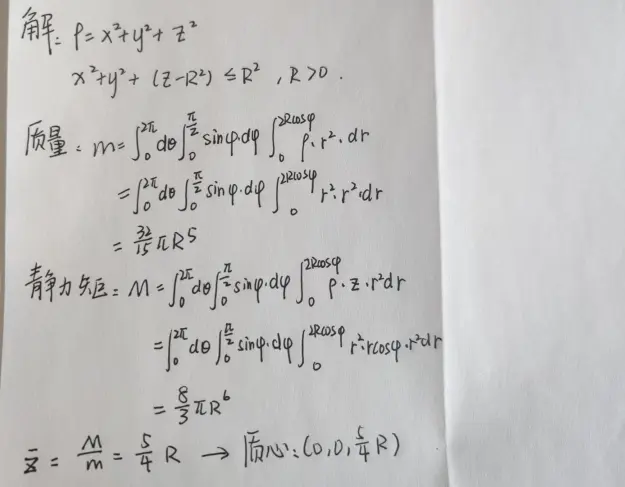 解: ρ=x²+y²+z²
x²+y²+(z-R²)≤R² , R>0.
质量: m=∫₀^{2π}dθ∫₀^{π/2}sinφ·dφ∫₀^{2Rcosφ}ρ·r²·dr
=∫₀^{2π}dθ∫₀^{π/2}sinφ·dφ∫₀^{2Rcosφ}r²·r²·dr
=32/15 πR⁵
静力矩: M=∫₀^{2π}dθ∫₀^{π/2}sinφ·dφ∫₀^{2Rcosφ}ρ·z·r²dr
=∫₀^{2π}dθ∫₀^{π/2}sinφ·dφ∫₀^{2Rcosφ}r²·rcosφ·r²dr
=8/3 πR⁶
z̄=M/m=5/4 R → 质心:(0,0,5/4 R)